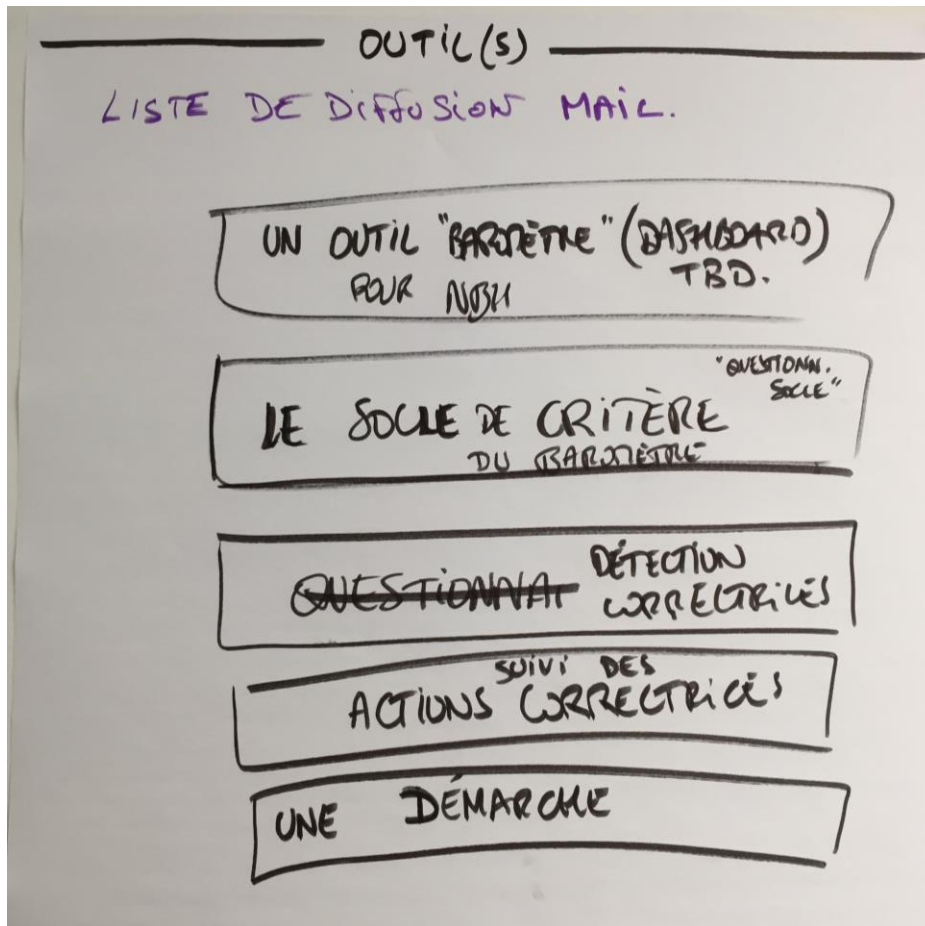 OUTIL(S)
LISTE DE DIFFUSION MAIL.
UN OUTIL "BAROMÈTRE" (DASHBOARD)
TBD.
POUR NBH
"QUESTIONN.
SOCLE"
LE SOCLE DE CRITÈRE
DU BAROMÈTRE
QUESTIONNAI DÉTECTION
CORRECTRICES
SUIVI DES
ACTIONS CORRECTRICES
UNE DÉMARCHE